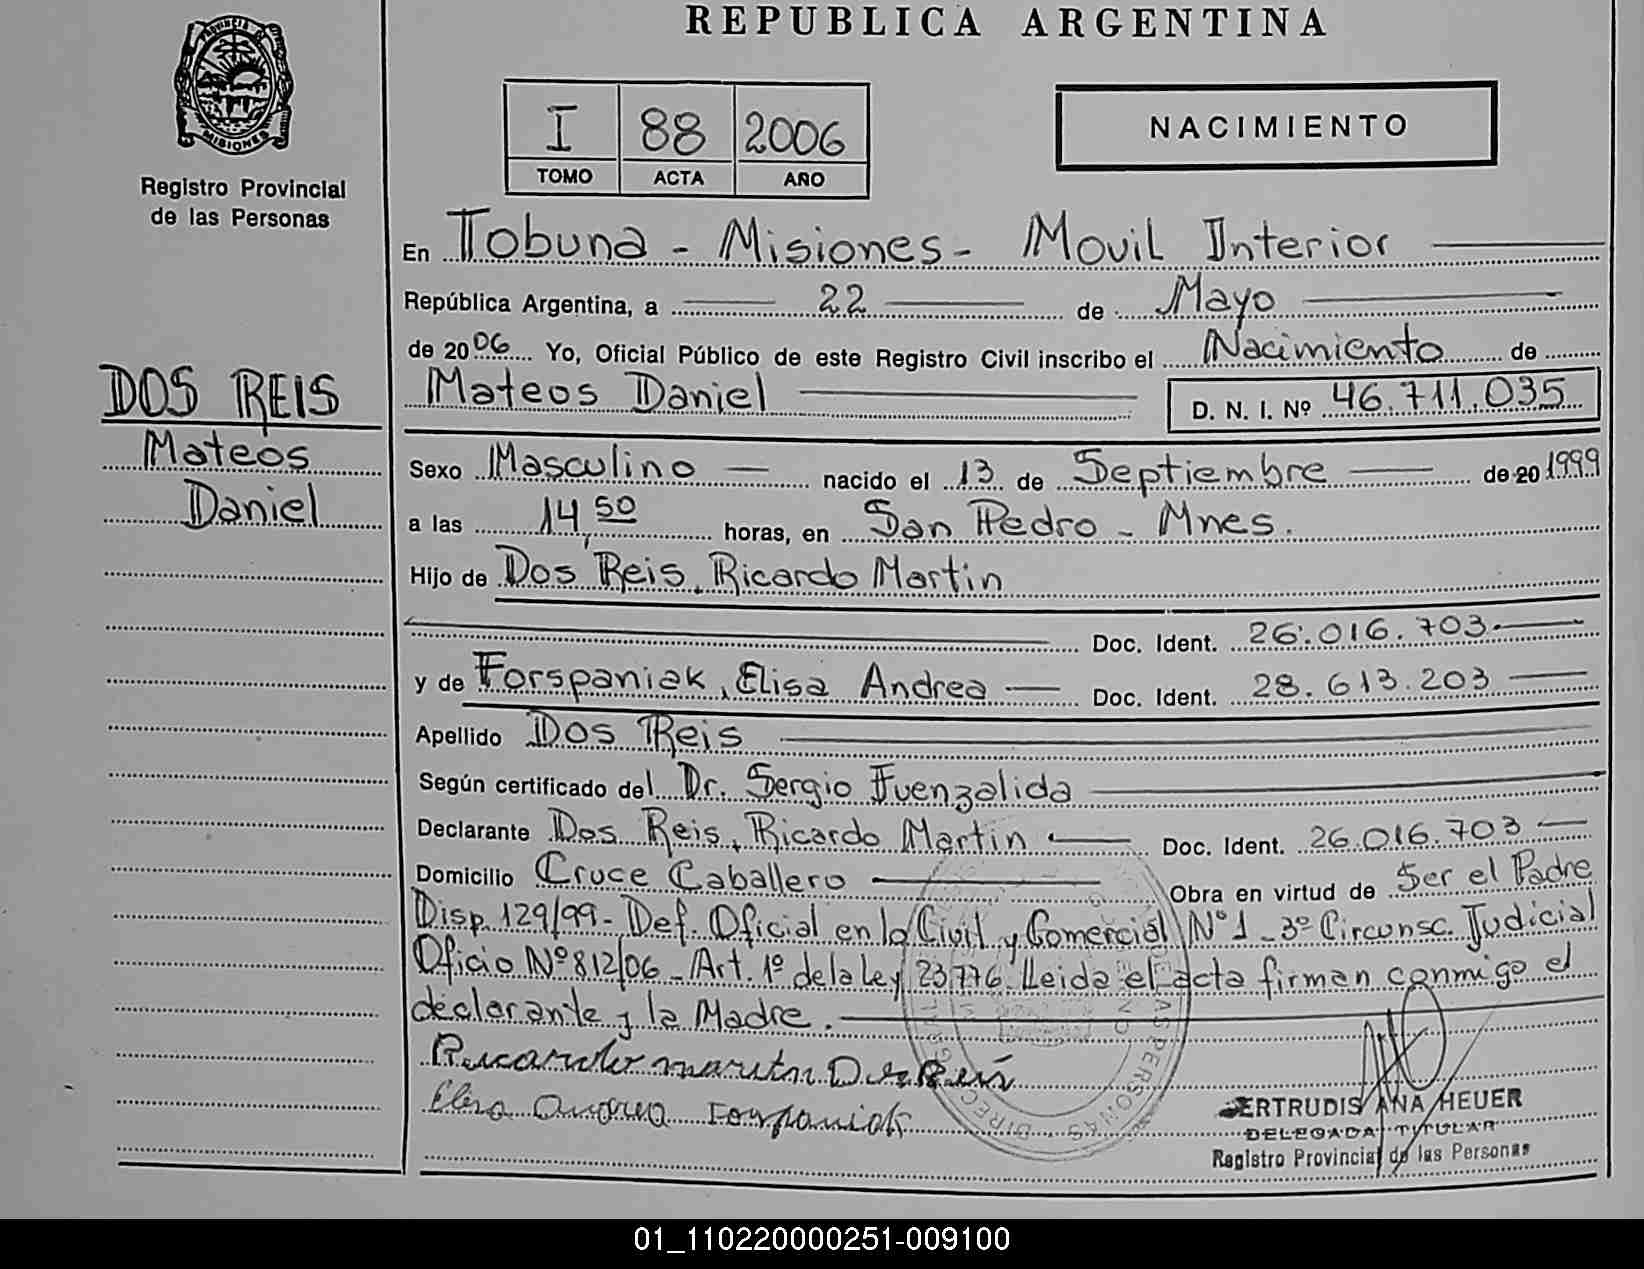 REPUBLICA ARGENTINA
PROVINCIA DE MISIONES
Registro Provincial
de las Personas
I 88 2006
TOMO ACTA AÑO
NACIMIENTO
En Tobuna - Misiones - Movil Interior
República Argentina, a 22 de Mayo
de 2006 Yo, Oficial Público de este Registro Civil inscribo el Nacimiento de
Mateos Daniel D. N. I. Nº 46.711.035
DOS REIS
Mateos
Daniel
Sexo Masculino nacido el 13 de Septiembre de 20 1999
a las 14,50 horas, en San Pedro - Mnes.
Hijo de Dos Reis, Ricardo Martin
Doc. Ident. 26.016.703
y de Forspaniak, Elisa Andrea Doc. Ident. 28.613.203
Apellido Dos Reis
Según certificado del Dr. Sergio Fuenzalida
Declarante Dos Reis, Ricardo Martin Doc. Ident. 26.016.703
Domicilio Cruce Caballero Obra en virtud de Ser el Padre
Disp. 129/99 - Def. Oficial en lo Civil y Comercial Nº 1 - 3º Circunsc. Judicial
Oficio Nº 812/06 - Art. 1º de la Ley 23.776. Leida el acta firman conmigo el
declarante y la Madre.
Ricardo martin Dos Reis
Elisa Andrea Forspaniak
GERTRUDIS ANA HEUER
DELEGADA TITULAR
Registro Provincial de las Personas
01_110220000251-009100